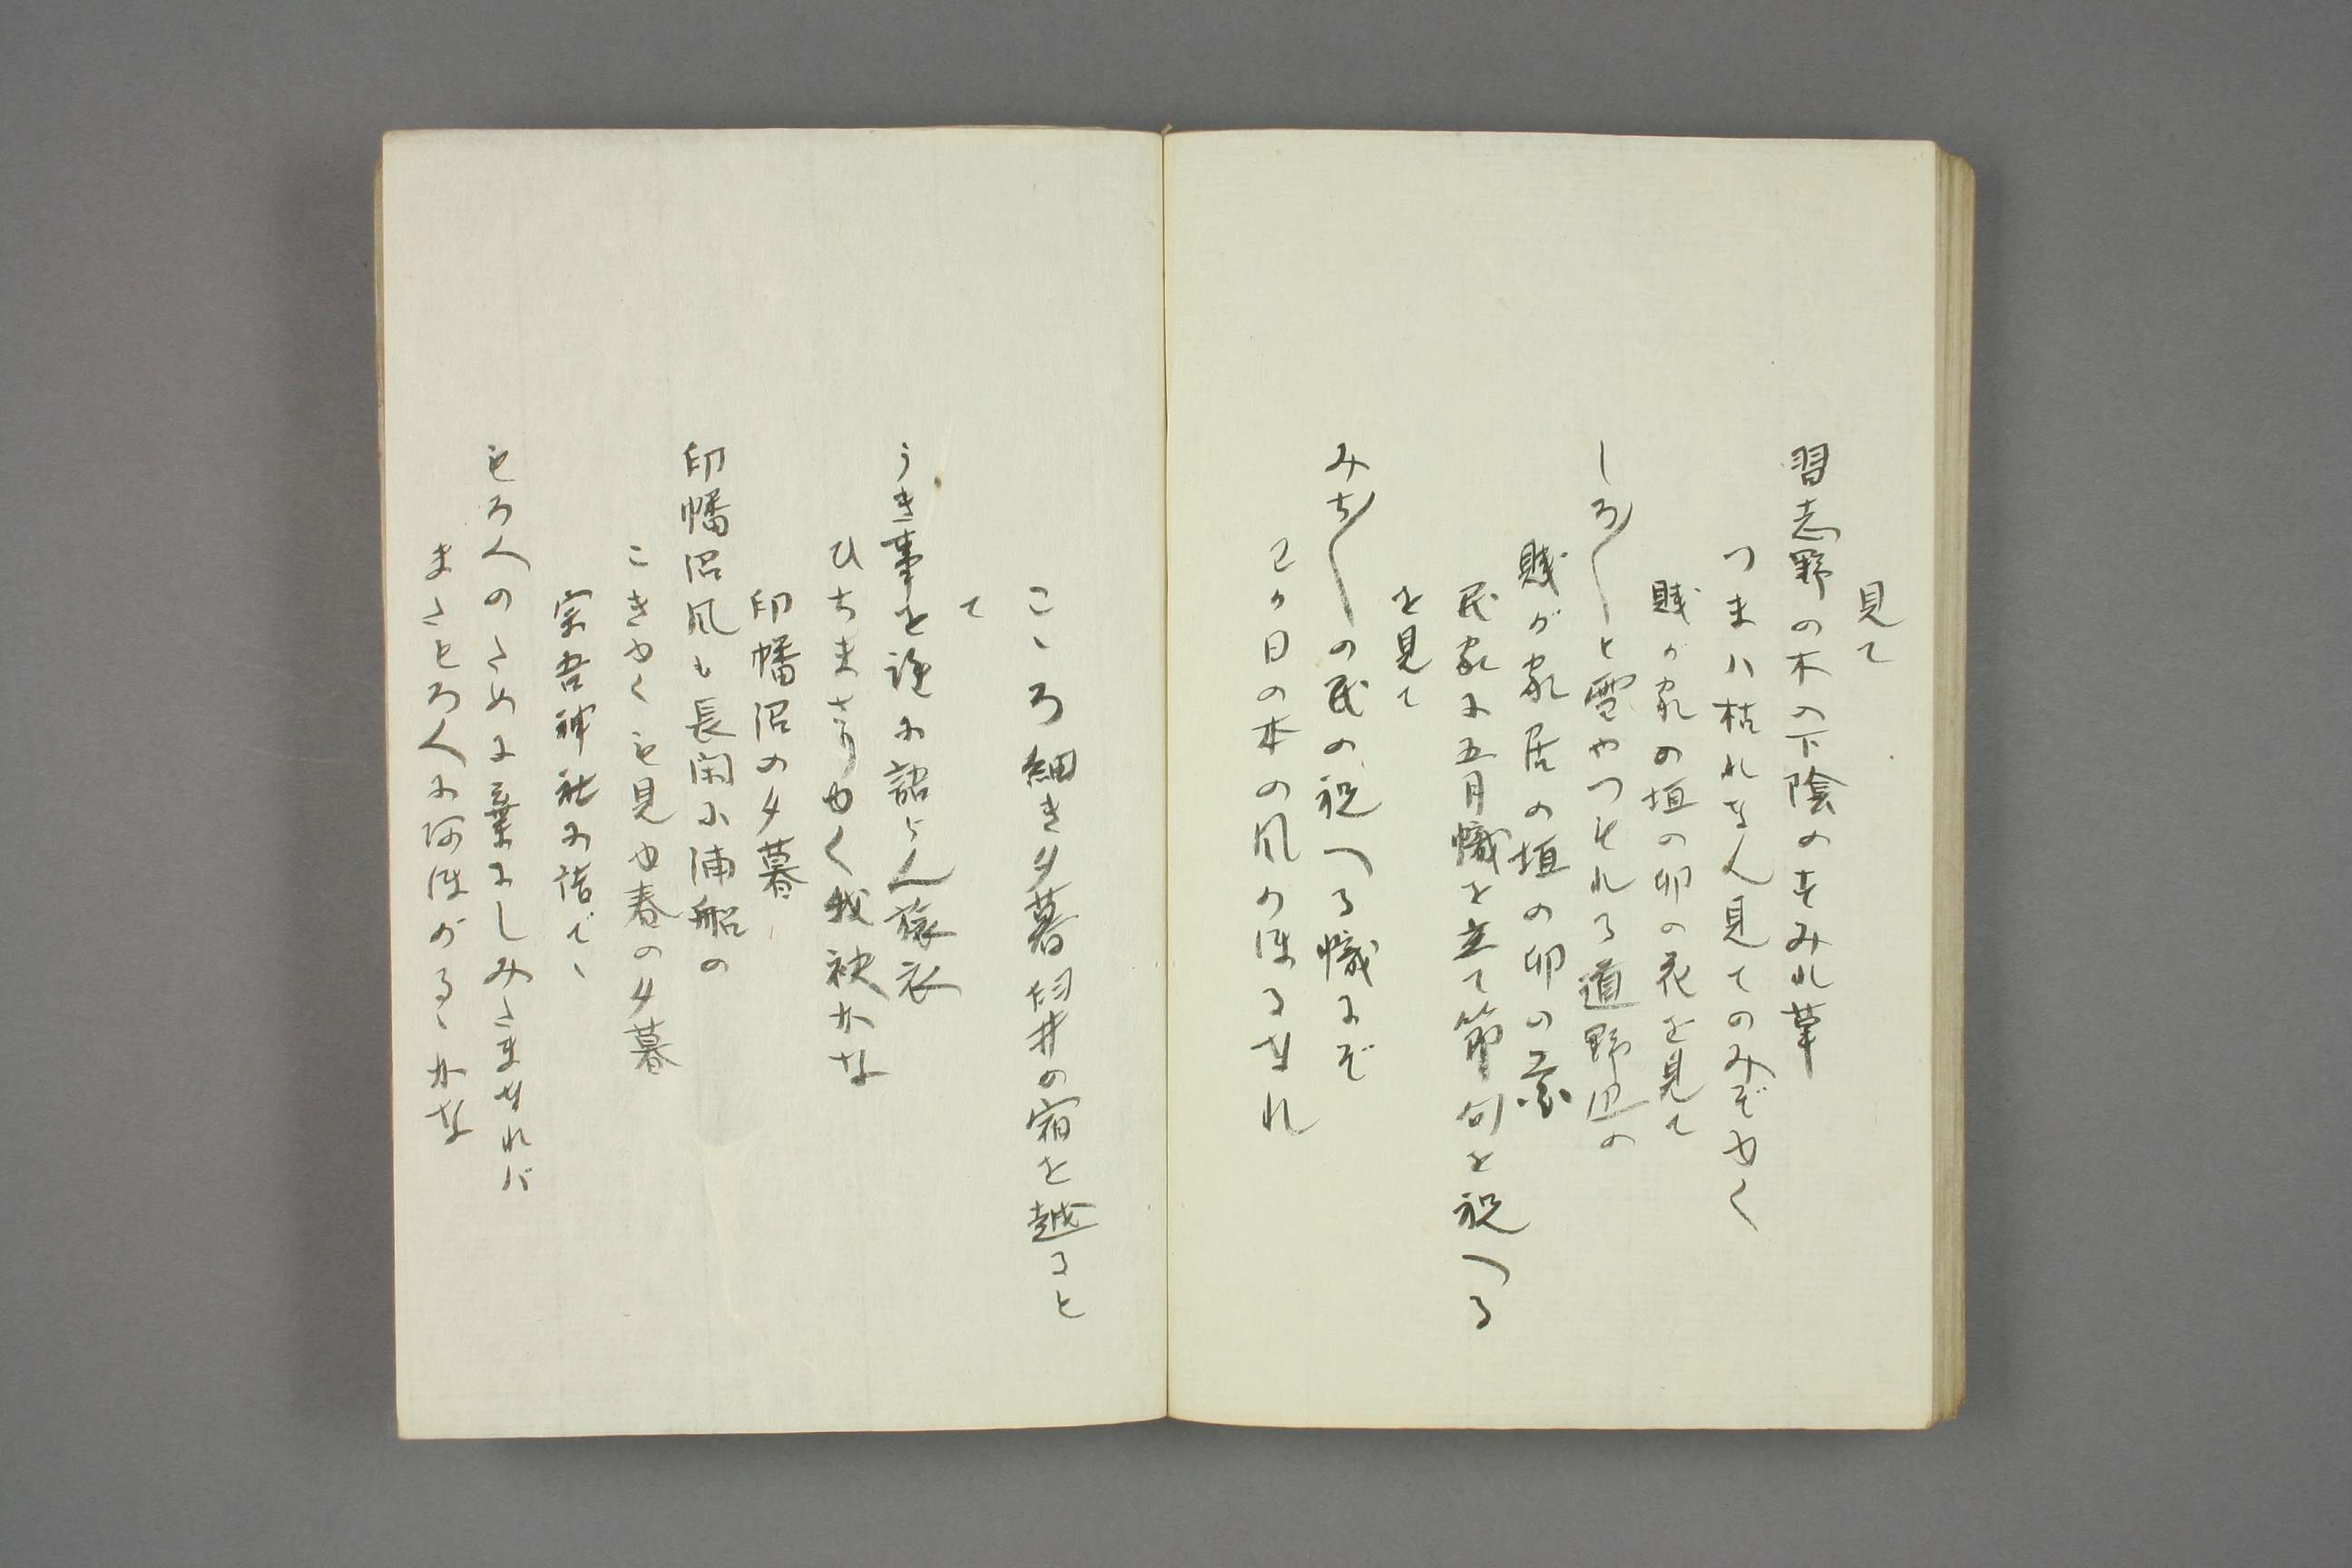 見て
習志野の木の下陰のすみれ草
つまハ枯れなん見てのみぞゆく
賎ヶ家の垣の卯の花を見て
しろ〳〵と雪やつもれる道野辺の
賎が家居の垣の卯の花
民家に五月幟を立て節句を祝へる
を見て
みち〳〵の民の祝へる幟にぞ
己ヶ日の本の風のほるなれ
こゝろ細き夕暮臼井の宿を越ると
て
うき事を誰に語らん旅衣
ひちまさりゆく我袂かな
印幡沼の夕暮
印幡沼風も長閑に浦船の
こきゆくも見ゆ春の夕暮
宗吾神社に詣でゝ
もろ人のために棄にしみたまなれバ
またもろ人に汲ほがるゝかな